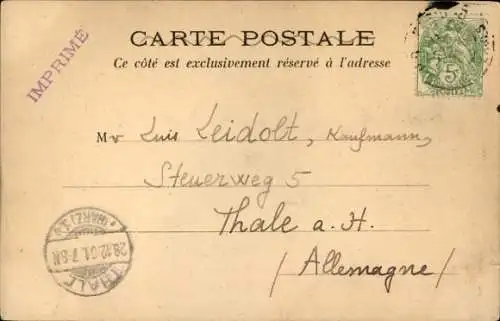 IMPRIMÉ
CARTE POSTALE
Ce côté est exclusivement réservé à l'adresse
5
Mr Luis Leidolt, Kaufmann,
Steuerweg 5
Thale a. H.
/ Allemagne /
THALE
28.12.01. 7-8N
(HARZ)